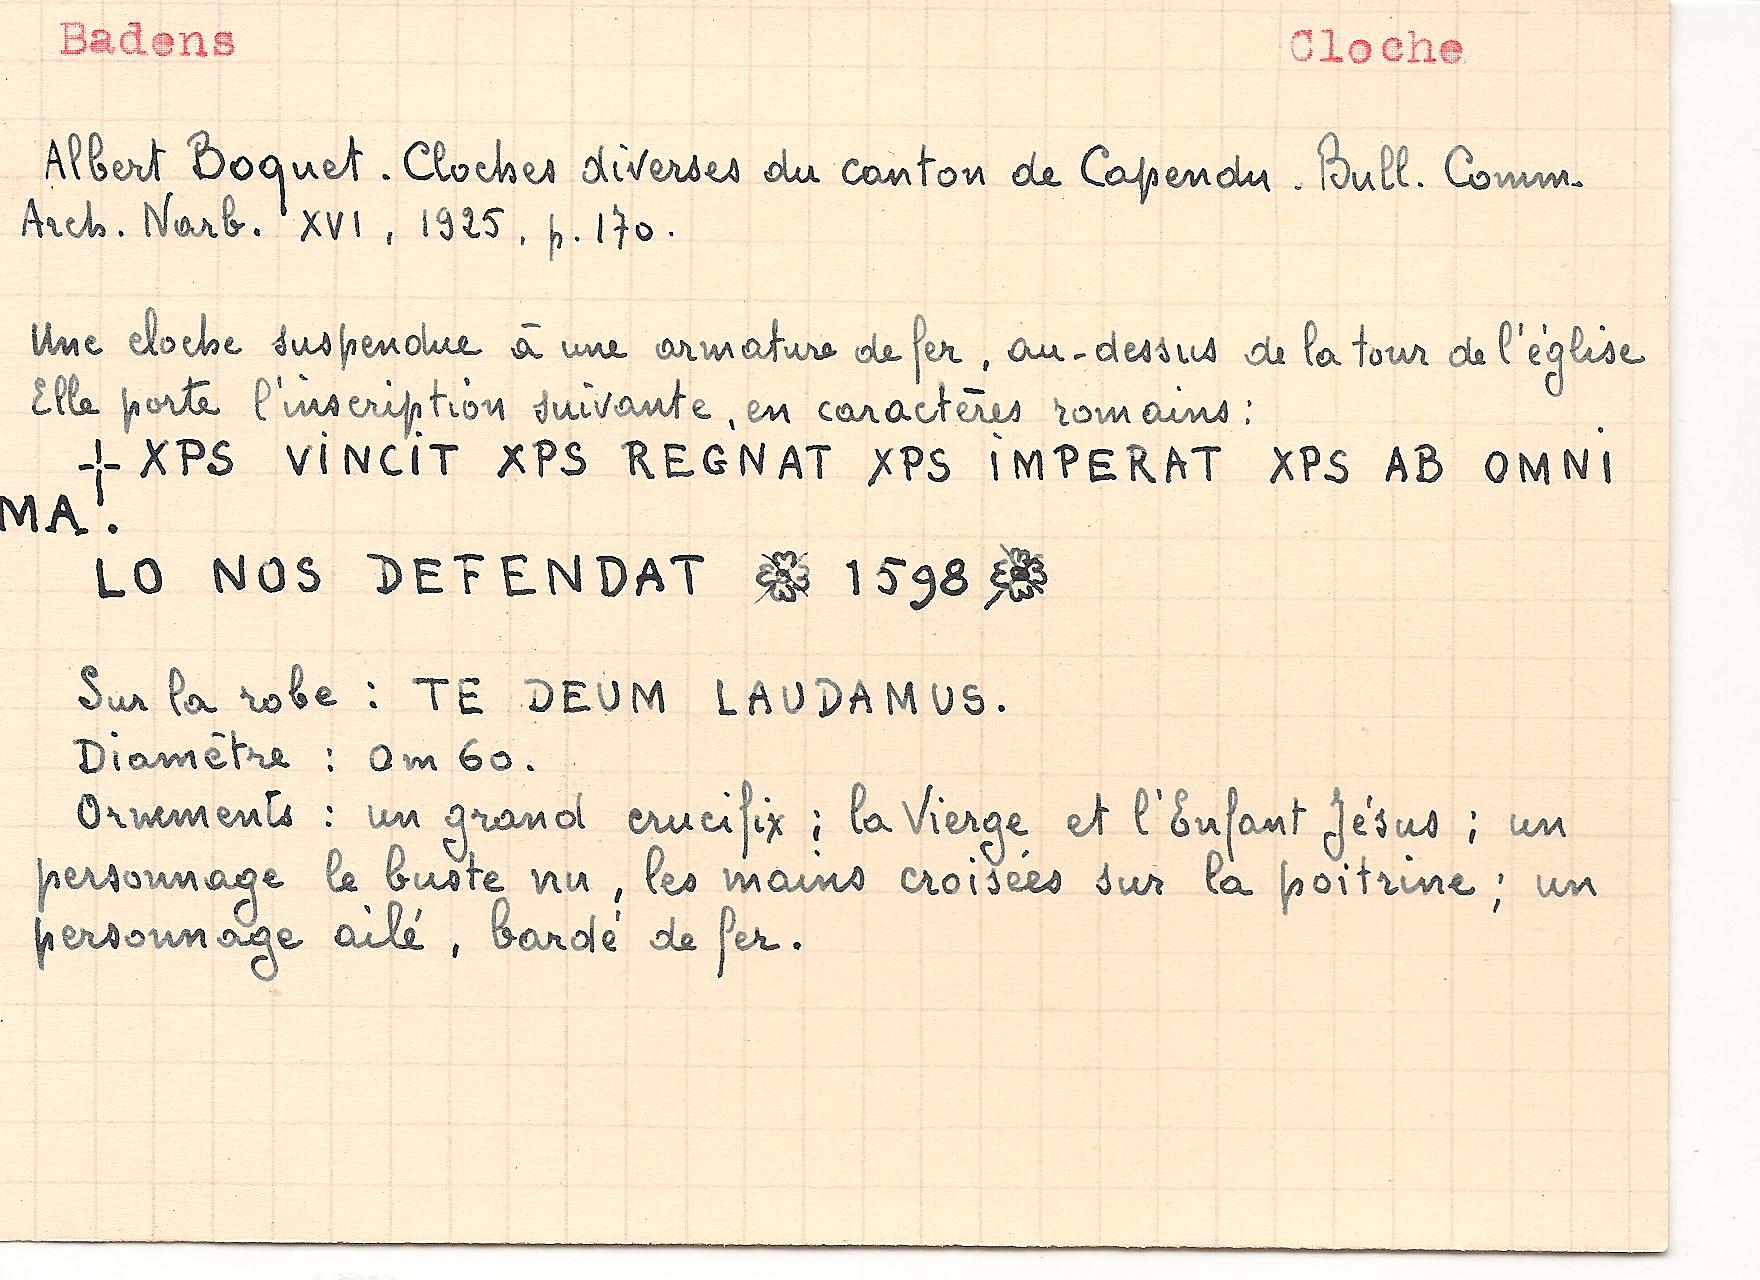 Badens Cloche
Albert Boquet. Cloches diverses du canton de Capendu. Bull. Comm.
Arch. Narb. XVI, 1925, p. 170.
Une cloche suspendue à une armature de fer, au-dessus de la tour de l'église
Elle porte l'inscription suivante, en caractères romains:
+ XPS VINCIT XPS REGNAT XPS IMPERAT XPS AB OMNI
MA.
LO NOS DEFENDAT 1598
Sur la robe : TE DEUM LAUDAMUS.
Diamètre : 0m60.
Ornements : un grand crucifix ; la Vierge et l'Enfant Jésus ; un
personnage le buste nu, les mains croisées sur la poitrine ; un
personnage ailé, bardé de fer.